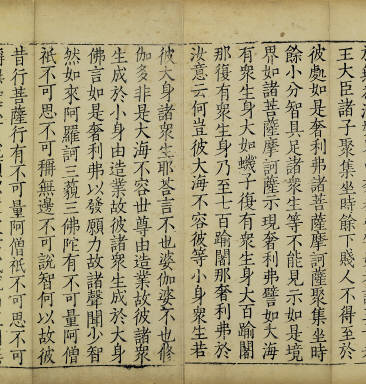 王大臣諸子聚集坐時餘下賤人不得至於
彼處如是奢利弗諸菩薩摩訶薩聚集坐時
餘小分智具足諸衆生等不能見示如是境
界如諸菩薩摩訶薩示現奢利弗譬如大海
有衆生身大如蟣子復有衆生身大百踰闍
那復有衆生身乃至七百踰闍那奢利弗於
汝意云何豈彼大海不容彼等小身衆生若
彼大身諸衆生耶荅言不也婆伽婆不也脩
伽多非是大海不容世尊由造業故彼諸衆
生成於小身由造業故彼諸衆生成於大身
佛言如是奢利弗以發願力故諸聲聞少智
然如來阿羅訶三藐三佛陀有不可量阿僧
祇不可思不可稱無邊不可說智何以故彼
昔行菩薩行有不可量阿僧祇不可思不可